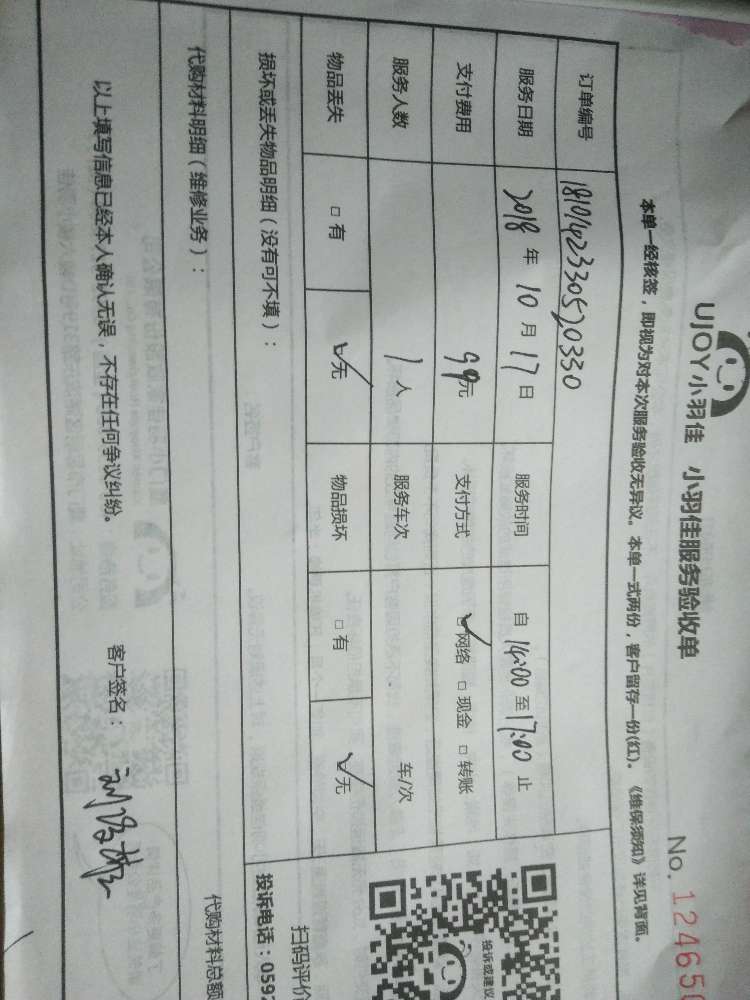 UJOY小羽佳 小羽佳服务验收单
No. 124650
本单一经核签，即视为对本次服务验收无异议。本单一式两份，客户留存一份(红)。《维保须知》详见背面。
订单编号 1810142330520330
服务日期 2018 年 10 月 17 日 服务时间 自 14:00 至 17:00 止
支付费用 99元 支付方式 网络 □ 现金 □ 转账
服务人数 1 人 服务车次 车/次
物品丢失 □ 有 ☑无 物品损坏 □ 有 ☑无
损坏或丢失物品明细（没有可不填）：
代购材料明细（维修业务）：
代购材料总额
以上填写信息已经本人确认无误，不存在任何争议纠纷。 客户签名：
投诉或建议
扫码评价
投诉电话：059